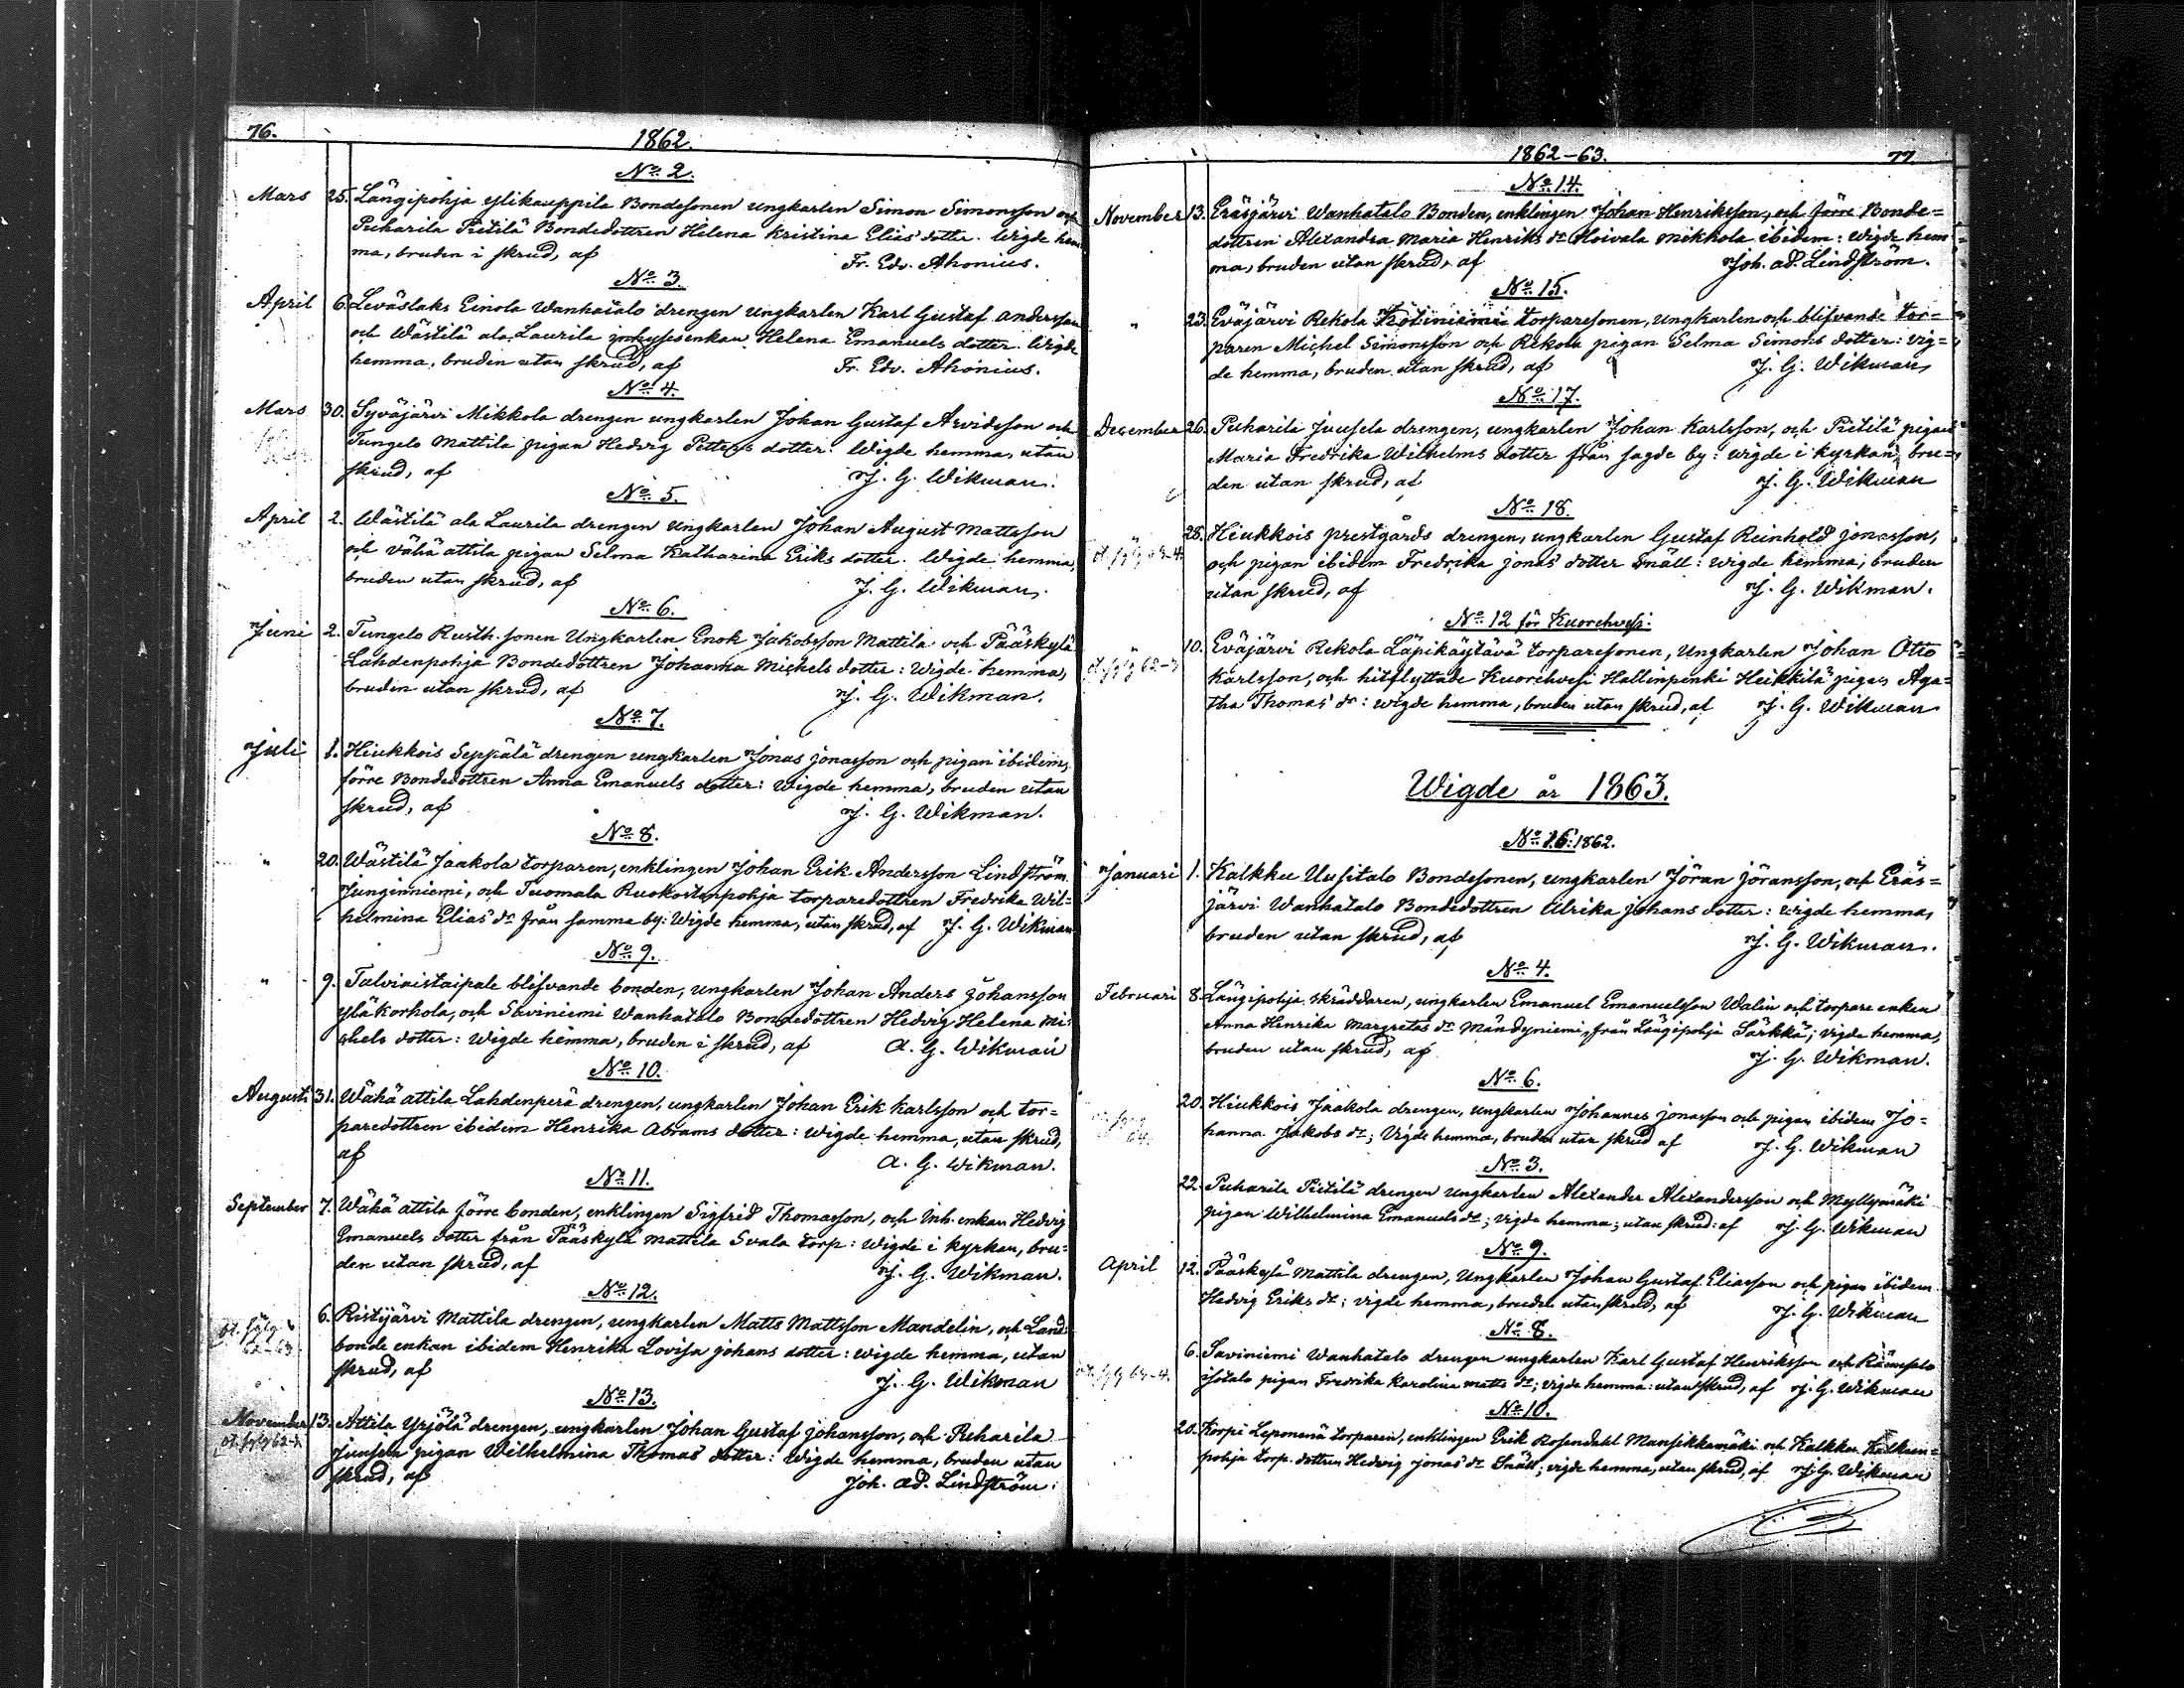 76.
1862.
No 2.
Mars 25. Längipohja ylikauppila Bondesonen ungkarlen Simon Simonsson och
Puharila Pietilä Bondedottren Helena Kristina Elias dotter. Wigde hem
ma, bruden i skrud, af Fr. Edv. Ahonius.
No 3.
April 6. Leväslaks Einola Wanhatalo drengen ungkarlen Karl Gustaf andersson
och Wästilä ala Laurila enkan Helena Emanuels dotter. Wigde
hemma, bruden utan skrud, af Fr. Edv. Ahonius.
No 4.
Mars 30. Syväjärvi Mikkola drengen ungkarlen Johan Gustaf Arvidsson och
Tungelo Mattila pigan Hedvig Petters dotter. Wigde hemma, utan
skrud, af J. G. Wikman.
No 5.
April 2. Wästilä ala Laurila drengen ungkarlen Johan August Mattsson
och vähä attila pigan Selma Katharina Eriks dotter. Wigde hemma,
bruden utan skrud, af J. G. Wikman.
No 6.
Juni 2. Tungelo Rusth. sonen Ungkarlen Enok Jakobsson Mattila och Pääskylä
Lahdenpohja Bondedottren Johanna Michels dotter: Wigde hemma,
bruden utan skrud, af J. G. Wikman.
No 7.
Juli 1. Hiukkois Seppälä drengen ungkarlen Jonas jonasson och pigan ibidem,
förre Bondedottren Anna Emanuels dotter: Wigde hemma, bruden utan
skrud, af J. G. Wikman.
No 8.
" 20. Wästilä Jaakola torparen, enklingen Johan Erik Andersson Lindström
Junginniemi, och Tuomala Ruokostenpohja torparedottren Fredrika Wil-
helmina Elias dr från samma by: Wigde hemma, utan skrud, af J. G. Wikman
No 9.
" 9. Talviaistaipale blifvande bonden, ungkarlen Johan Anders Johansson
yläkorhola, och Saviniemi Wanhatalo Bondedottren Hedvig Helena Mi-
chels dotter: Wigde hemma, bruden i skrud, af A. G. Wikman
No 10.
Augusti 31. Wähä attila Lahdenperä drengen, ungkarlen Johan Erik Karlsson och tor=
paredottren ibidem Henrika Abrams dotter: Wigde hemma, utan skrud,
af A. G. Wikman.
No 11.
September 7. Wähä attila förre bonden, enklingen Sigfrid Thomasson, och Inh. enkan Hedvig
Emanuels dotter från Pääskylä Mattila Svala torp: Wigde i kyrkan, bru=
den utan skrud, af J. G. Wikman.
No 12.
6. Ristijärvi Mattila drengen, ungkarlen Matts Mattsson Mandelin, och Land=
bonde enkan ibidem Henrika Lovisa johans dotter: wigde hemma, utan
skrud, af J. G. Wikman
No 13.
November 13. Attila Yrjölä drengen, ungkarlen Johan Gustaf johansson, och Puharila
Juusela pigan Wilhelmina Thomas dotter: Wigde hemma, bruden utan
skrud, af Joh. Ad. Lindström.
1862-63.
77
No 14.
November 13. Eräsjärvi Wanhatalo Bonden, enklingen Johan Henriksson, och förre Bonde=
dottren Alexandra Maria Henriks dr Hoivala Mikkola ibidem: Wigde hem
ma, bruden utan skrud, af Joh. Ad. Lindström.
No 15.
" 23. Eväjärvi Rekola torparesonen, ungkarlen och blifvande tor=
paren Michel Simonsson och Rekola pigan Selma Simons dotter: vig=
de hemma, bruden utan skrud, af J. G. Wikman,
No 17.
December 26. Puharila Juusela drengen, ungkarlen Johan Karlsson, och Pietilä pigan
Maria Fredrika Wilhelms dotter från sagde by: wigde i kyrkan, bru=
den utan skrud, af J. G. Wikman
No 18.
28. Hiukkois prestgårds drengen, ungkarlen Gustaf Reinhold jonasson,
och pigan ibidem Fredrika jonas dotter Snäll: wigde hemma, bruden
utan skrud, af J. G. Wikman.
No 12 för Kuorehvesi.
10. Eväjärvi Rekola Läpikäytävä torparesonen, Ungkarlen Johan Otto
Karlsson, och hitflyttade Kuorehvesi Hallinpenki Heikkilä pigan Aga=
tha Thomas dr: wigde hemma, bruden utan skrud, af J. G. Wikman
Wigde år 1863.
No 16: 1862.
Januari 1. Kalkku Uusitalo Bondesonen, ungkarlen Jöran jöransson, och Eräs=
järvi Wanhatalo Bondedottren Ulrika johans dotter: wigde hemma,
bruden utan skrud, af J. G. Wikman.
No 4.
Februari 8. Längipohja, skräddaren, ungkarlen Emanuel Emanuelsson Walin och torpare enkan
Anna Henrika Margretas dr Mändyniemi, från Längipohja Särkkä; vigde hemma,
bruden utan skrud, af J. G. Wikman.
No 6.
20. Hiukkois Jaakola drengen, ungkarlen Johannes jonasson och pigan ibidem Jo=
hanna Jakobs dr; Vigde hemma, bruden utan skrud af J. G. Wikman
No 3.
22. Puharila Pietilä drengen ungkarlen Alexander Alexandersson och Myllymäki
pigan Wilhelmina Emanuels dr; vigde hemma; utan skrud: af J. G. Wikman
No 9.
April 12. Pääskylä Mattila drengen, Ungkarlen Johan Gustaf Eliasson och pigan ibidem
Hedvig Eriks dr; vigde hemma, bruden utan skrud, af J. G. Wikman
No 8.
6. Saviniemi Wanhatalo drengen ungkarlen Karl Gustaf Henriksson och
isotalo pigan Fredrika Karolina Matts dr; vigde hemma: utan skrud, af J. G. Wikman
No 10.
20. Korpi Leponenä torparen, enklingen Erik Rosendahl Mansikkamäki och Kalkku Kalkun=
pohja torp. dottren Hedvig Jonas dr Snäll; vigde hemma, utan skrud, af J. G. Wikman